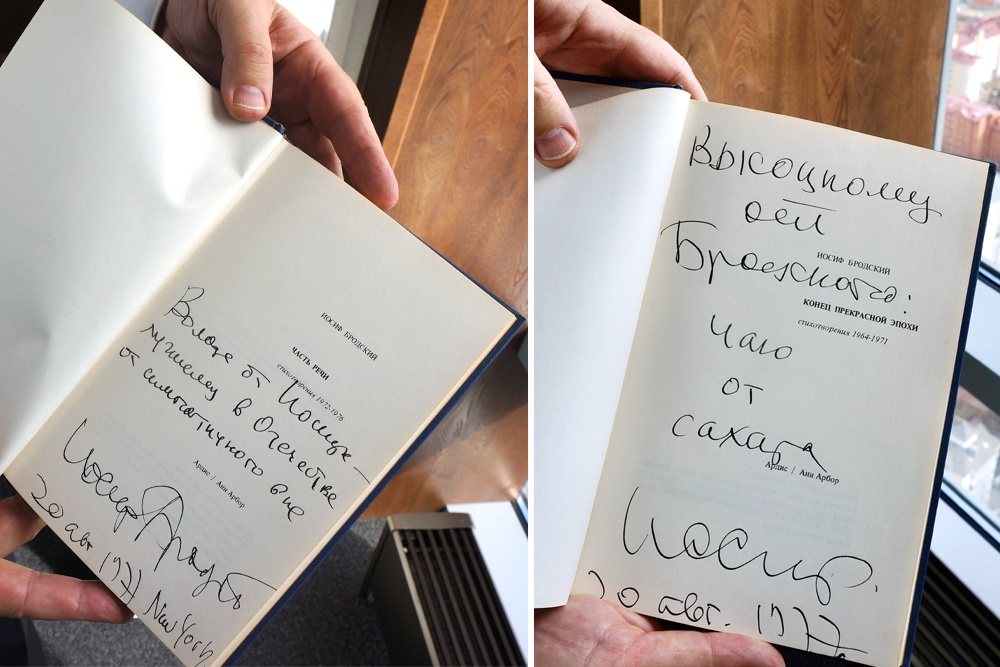 ИОСИФ БРОДСКИЙ
ЧАСТЬ РЕЧИ
стихотворения 1972-1976
Володе от Иосифа —
лучшему в Отечестве
от симпатичного вне
Ардис / Анн Арбор
Иосиф Бродский
20 авг 1977 New York
Высоцкому
от
ИОСИФ БРОДСКИЙ
Бродского:
КОНЕЦ ПРЕКРАСНОЙ ЭПОХИ
стихотворения 1964-1971
Чаю
от
сахара
Ардис / Анн Арбор
Иосиф.
20 авг. 1977